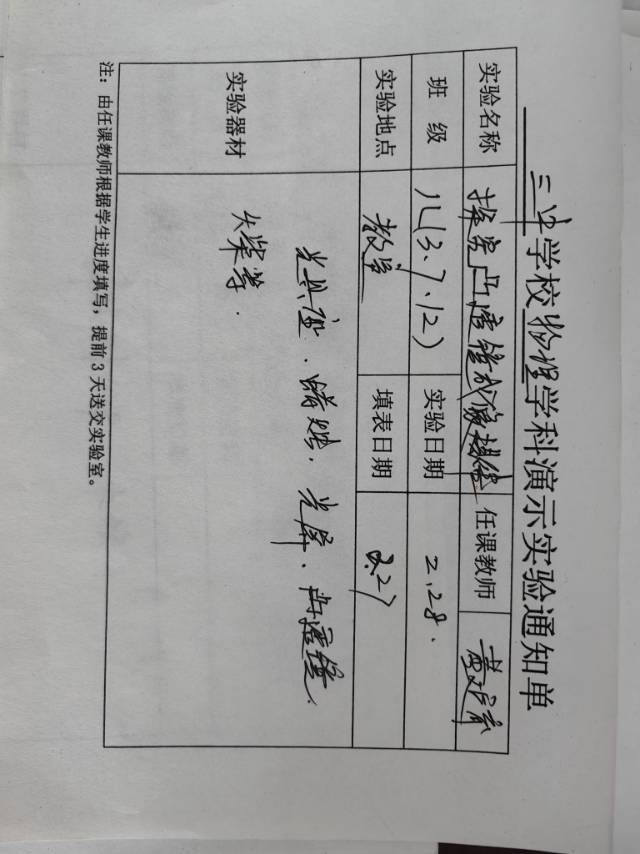 三中学校物理学科演示实验通知单
实验名称 探究凸透镜成像规律 任课教师
班 级 八(3.7.12) 实验日期 2.28.
实验地点 教室 填表日期 2.27
实验器材 光具座.蜡烛.光屏.凸透镜.
火柴等.
注：由任课教师根据学生进度填写，提前3天送交实验室。